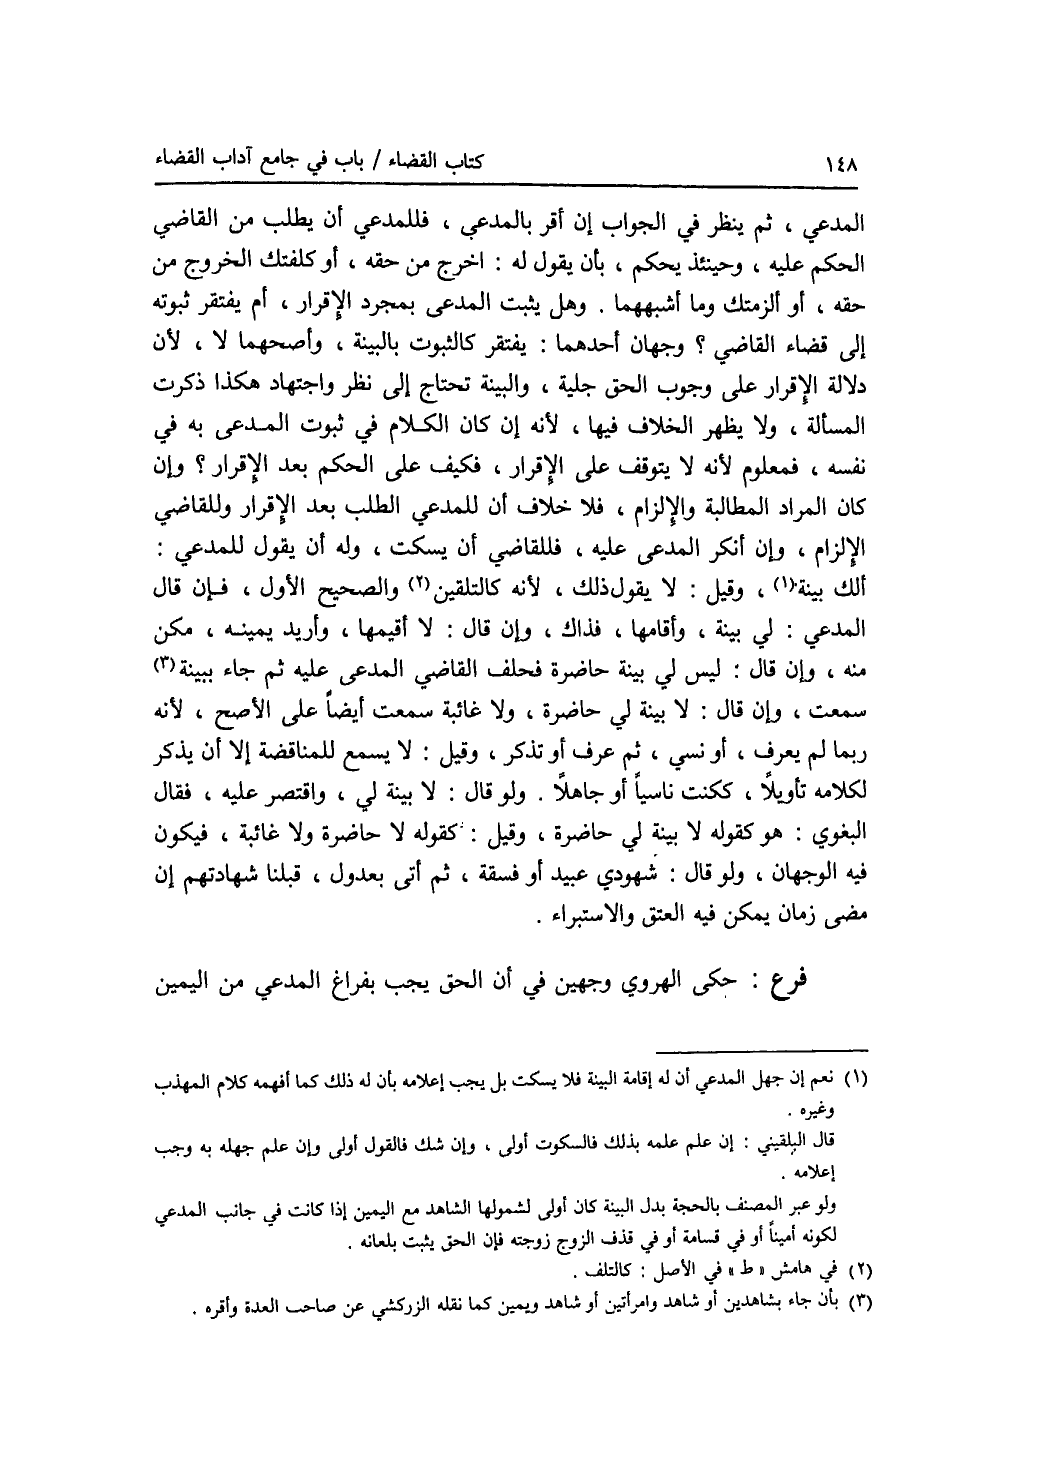 ١٤٨ كتاب القضاء / باب في جامع آداب القضاء
المدعي ، ثم ينظر في الجواب إن أقر بالمدعي ، فللمدعي أن يطلب من القاضي
الحكم عليه ، وحينئذ يحكم ، بأن يقول له : اخرج من حقه ، أو كلفتك الخروج من
حقه ، أو ألزمتك وما أشبههما . وهل يثبت المدعى بمجرد الإقرار ، أم يفتقر ثبوته
إلى قضاء القاضي ؟ وجهان أحدهما : يفتقر كالثبوت بالبينة ، وأصحهما لا ، لأن
دلالة الإقرار على وجوب الحق جلية ، والبينة تحتاج إلى نظر واجتهاد هكذا ذكرت
المسألة ، ولا يظهر الخلاف فيها ، لأنه إن كان الكلام في ثبوت المدعى به في
نفسه ، فمعلوم لأنه لا يتوقف على الإقرار ، فكيف على الحكم بعد الإقرار ؟ وإن
كان المراد المطالبة والإلزام ، فلا خلاف أن للمدعي الطلب بعد الإقرار وللقاضي
الإلزام ، وإن أنكر المدعى عليه ، فللقاضي أن يسكت ، وله أن يقول للمدعي :
ألك بينة(١) ، وقيل : لا يقول ذلك ، لأنه كالتلقين(٢) والصحيح الأول ، فإن قال
المدعي : لي بينة ، وأقامها ، فذاك ، وإن قال : لا أقيمها ، وأريد يمينه ، مكن
منه ، وإن قال : ليس لي بينة حاضرة فحلف القاضي المدعى عليه ثم جاء ببينة(٣)
سمعت ، وإن قال : لا بينة لي حاضرة ، ولا غائبة سمعت أيضاً على الأصح ، لأنه
ربما لم يعرف ، أو نسي ، ثم عرف أو تذكر ، وقيل : لا يسمع للمناقضة إلا أن يذكر
لكلامه تأويلاً ، ككنت ناسياً أو جاهلاً . ولو قال : لا بينة لي ، واقتصر عليه ، فقال
البغوي : هو كقوله لا بينة لي حاضرة ، وقيل : كقوله لا حاضرة ولا غائبة ، فيكون
فيه الوجهان ، ولو قال : شهودي عبيد أو فسقة ، ثم أتى بعدول ، قبلنا شهادتهم إن
مضى زمان يمكن فيه العتق والاستبراء .
فرع : حكى الهروي وجهين في أن الحق يجب بفراغ المدعي من اليمين
(١) نعم إن جهل المدعي أن له إقامة البينة فلا يسكت بل يجب إعلامه بأن له ذلك كما أفهمه كلام المهذب
وغيره .
قال البلقيني : إن علم علمه بذلك فالسكوت أولى ، وإن شك فالقول أولى وإن علم جهله به وجب
إعلامه .
ولو عبر المصنف بالحجة بدل البينة كان أولى لشمولها الشاهد مع اليمين إذا كانت في جانب المدعي
لكونه أميناً أو في قسامة أو في قذف الزوج زوجته فإن الحق يثبت بلعانه .
(٢) في هامش « ط » في الأصل : كالتلف .
(٣) بأن جاء بشاهدين أو شاهد وامرأتين أو شاهد ويمين كما نقله الزركشي عن صاحب العدة وأقره .